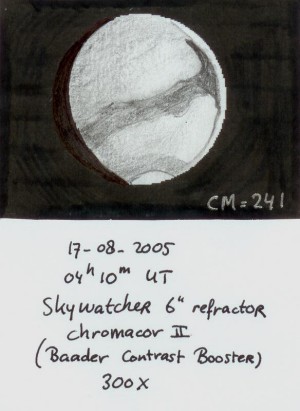 CM = 241
17-08-2005
04h 10m UT
Skywatcher 6" refractor
chromacor II
(Baader Contrast Booster)
300x